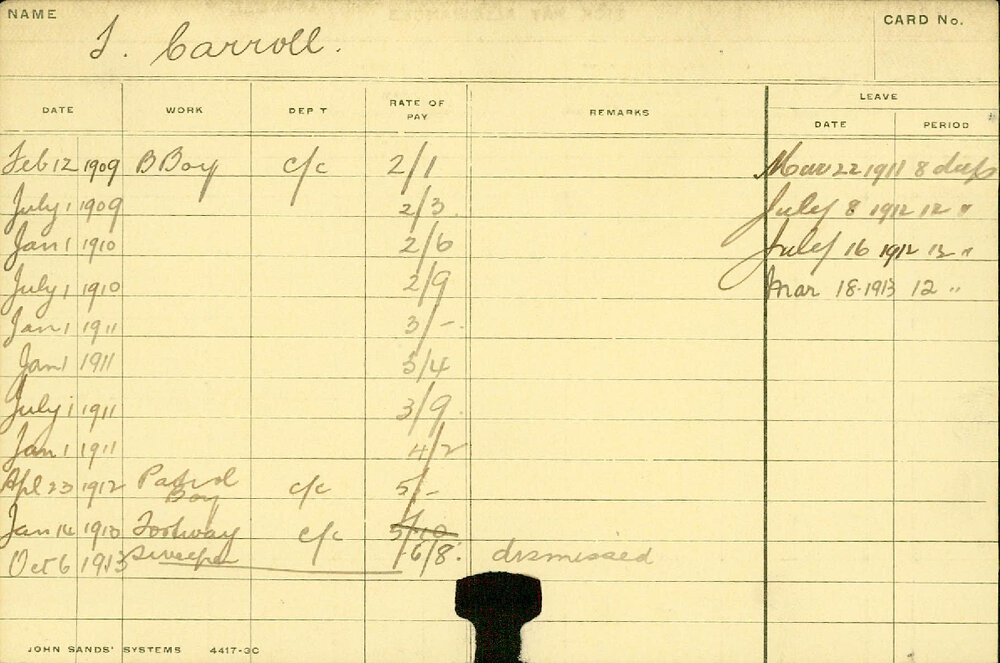 NAME
CARD No.
J. Carroll.
DATE WORK DEPT RATE OF PAY REMARKS LEAVE
DATE PERIOD
Feb 12 1909 B Boy c/c 2/1 Mar 22 1911 8 days
July 1 1909 2/3. July 8 1912 12 "
Jan 1 1910 2/6 July 16 1912 12 "
July 1 1910 2/9 Mar 18-1913 12 "
Jan 1 1911 3/-.
Jan 1 1911 3/4
July 1 1911 3/9.
Jan 1 1911 4/2
Apl 23 1912 Patrol Boy c/c 5/-
Jan 14 1913 Footway c/c 5/10
Oct 6 1913 Sweeper 6/8. dismissed
JOHN SANDS' SYSTEMS 4417-3C